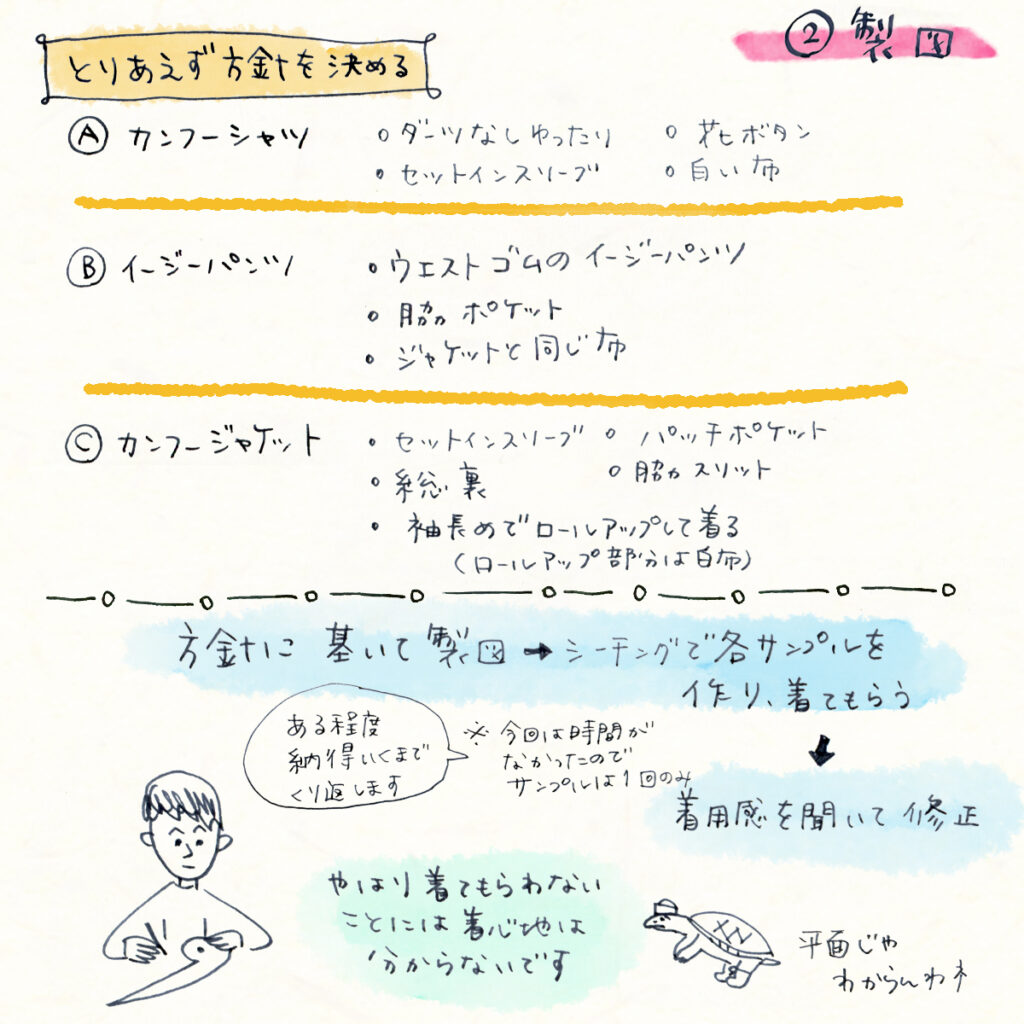 ② 製図
とりあえず方針を決める
Ⓐ カンフーシャツ
○ダーツなしゆったり ○ 花ボタン
・セットインスリーブ ○白い布
Ⓑ イージーパンツ
○ウエストゴムのイージーパンツ
○ 脇ポケット
・ジャケットと同じ布
Ⓒ カンフージャケット
・セットインスリーブ ○ パッチポケット
・総裏 ○脇スリット
・袖長めでロールアップして着る
(ロールアップ部分は白布)
方針に基いて製図➡シーチングで各サンプルを
作り、着てもらう
⬇
ある程度
納得いくまで
くり返します
※今回は時間が
なかったので
サンプルは1回のみ
着用感を聞いて修正
やはり着てもらわない
ことには着心地は
分からないです
平面じゃ
わからんわネ